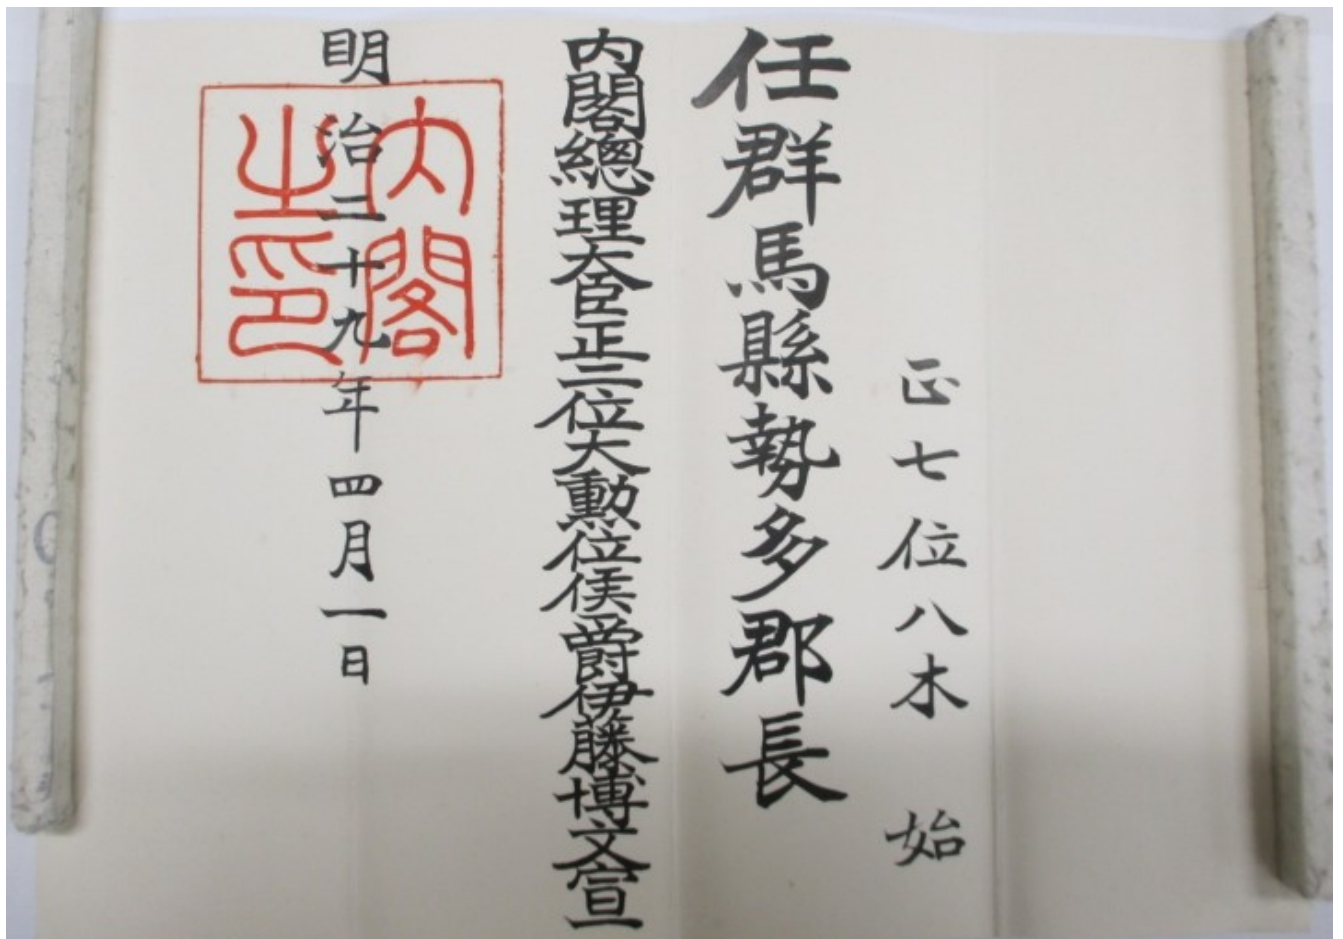 正七位八木始
任群馬縣勢多郡長
内閣總理大臣正二位大勳位侯爵伊藤博文宣
明治二十九年四月一日
内閣之印